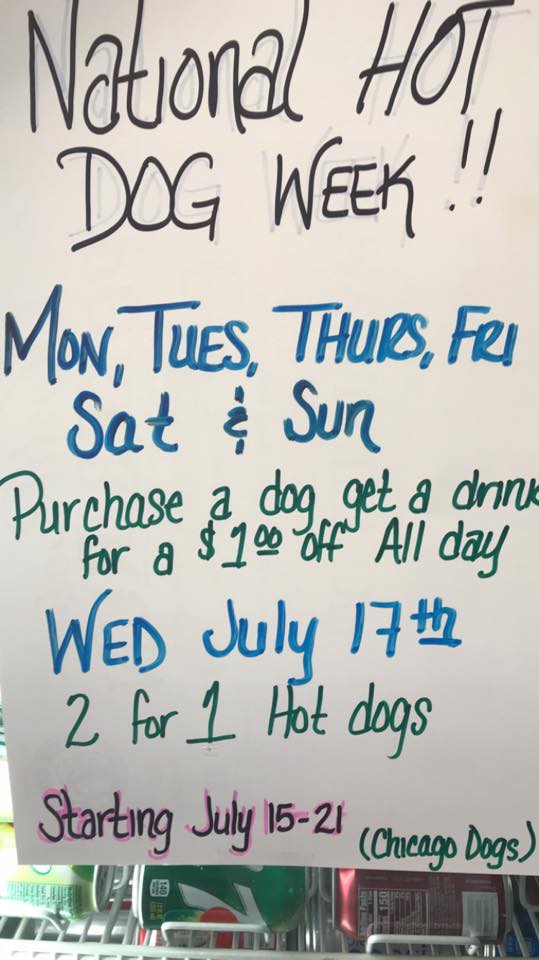 National HOT
DOG WEEK !!
MON, TUES, THURS, FRI
Sat & Sun
Purchase a dog get a drink
for a $1.00 off All day
WED July 17th
2 for 1 Hot dogs
Starting July 15-21
(Chicago Dogs)
140
7
150